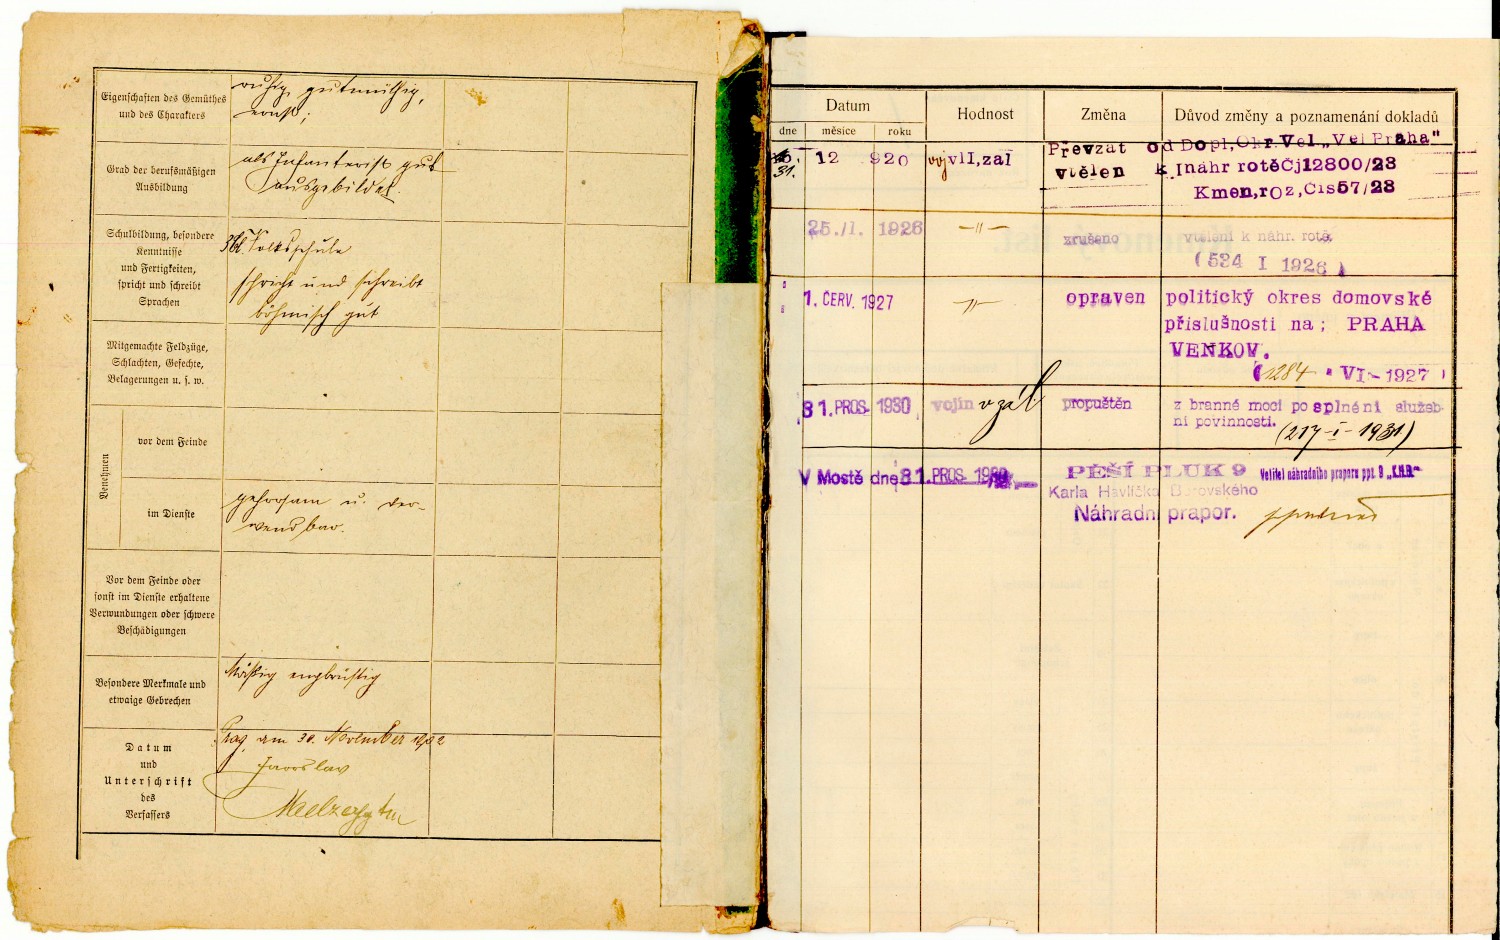 Eigenschaften des Gemüthes
und des Charakters
ruhig, gutmüthig,
ernst;
Grad der berufsmäßigen
Ausbildung
als Infanterist gut
ausgebildet.
Schulbildung, besondere
Kenntnisse
und Fertigkeiten,
spricht und schreibt
Sprachen
3kl. Volksschule
spricht und schreibt
böhmisch gut
Mitgemachte Feldzüge,
Schlachten, Gefechte,
Belagerungen u. s. w.
Benehmen
vor dem Feinde
im Dienste
gehorsam u. ver-
wendbar.
Vor dem Feinde oder
sonst im Dienste erhaltene
Verwundungen oder schwere
Beschädigungen
Besondere Merkmale und
etwaige Gebrechen
Mäßig engbrüstig
Datum
und
Unterschrift
des
Verfassers
Prag, am 30. November
Jaroslav
Datum Hodnost Změna Důvod změny a poznamenání dokladů
dne měsíce roku
31. 12 920 voj vII,zál Převzat od Dopl,Okr.Vel „Vel Praha"
vtělen k I náhr rotě Čj12800/23
Kmen,roz,Čís57/23
25./I. 1926 -"- zrušeno vtělení k náhr. rotě.
(524 I 1926)
1. ČERV. 1927 -"- opraven politický okres domovské
příslušnosti na; PRAHA
VENKOV.
(1284 VI - 1927)
31. PROS. 1930 vojín v zál. propuštěn z branné moci po splnění služeb-
ní povinnosti.
(217-I-1931)
V Mostě dne 31. PROS. 1930 PĚŠÍ PLUK 9 Velitel náhradního praporu pěš. pl. 9 „K.H.B."
Karla Havlíčka Borovského
Náhradní prapor.